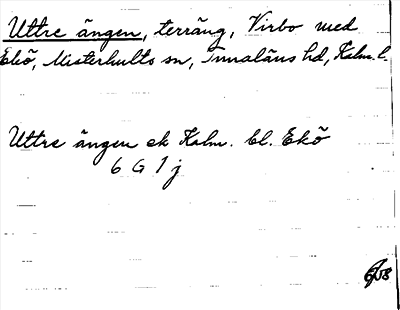 Uttre ängen, terräng, Virbo med
Ekö, Misterhults sn, Tunaläns hd, Kalm. l.
Uttre ängen ek Kalm. bl. Ekö
6 G 1 j